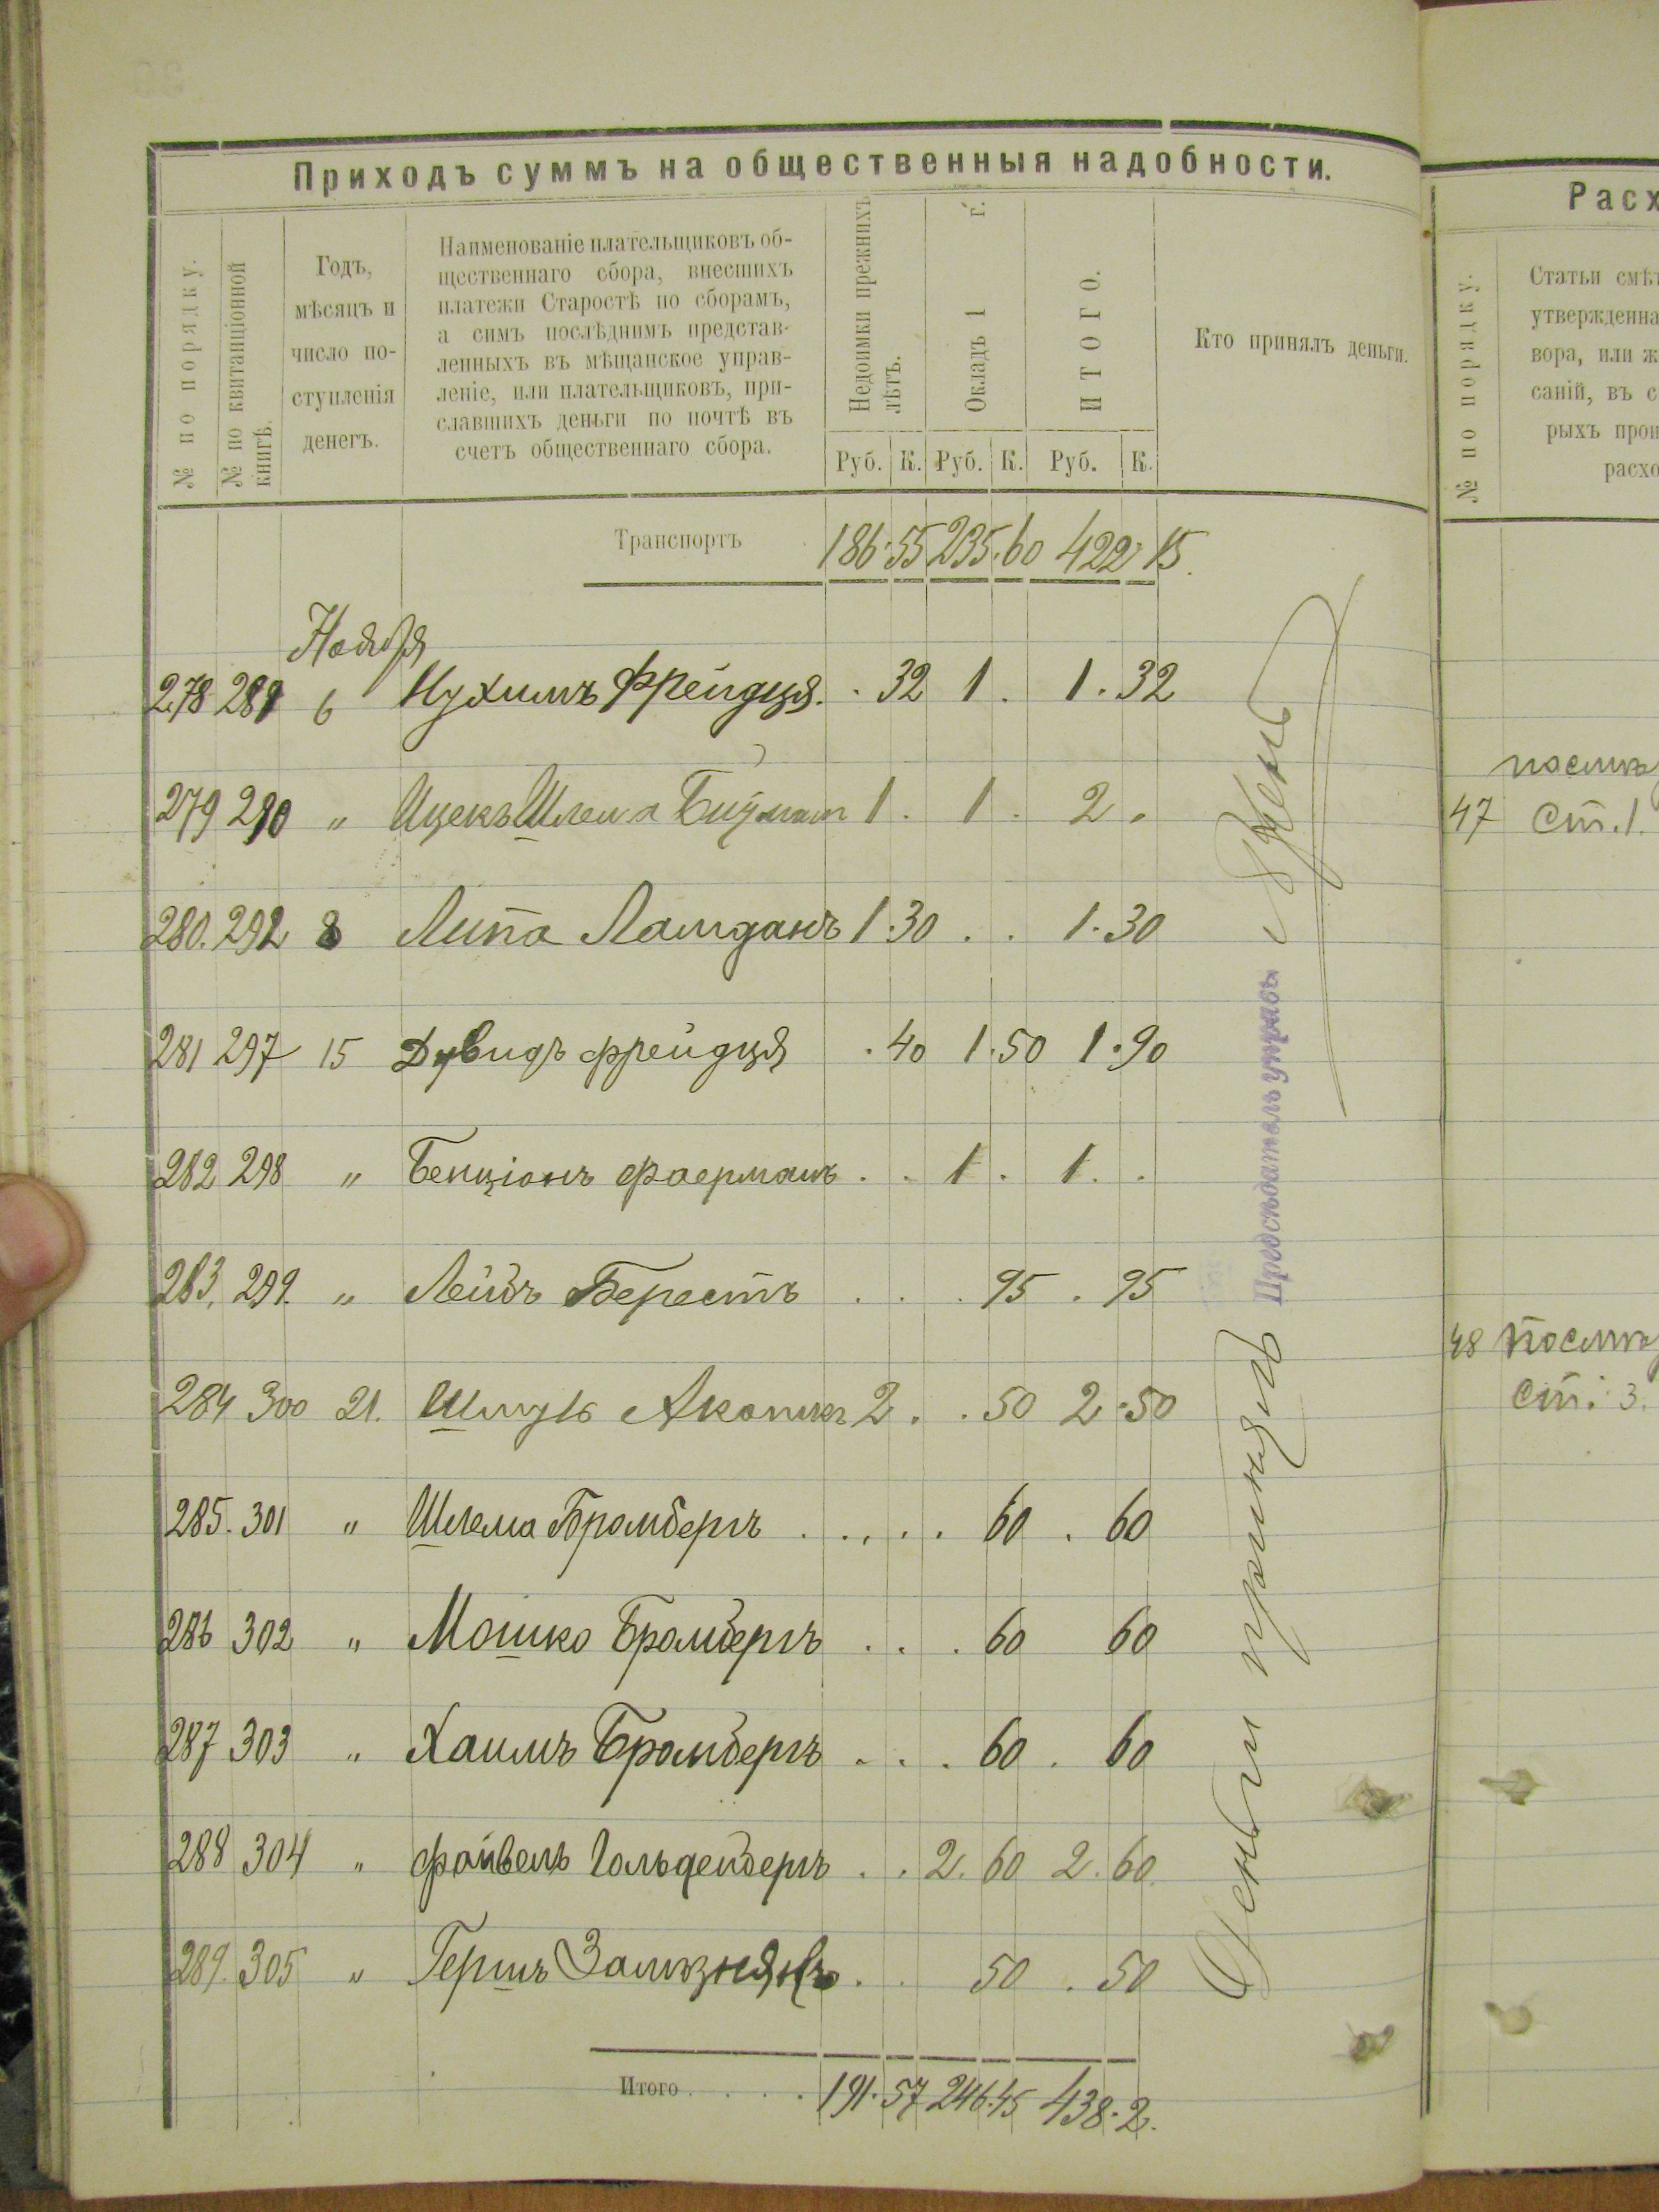 Приходъ суммъ на общественныя надобности.
№ по порядку.
№ по квитанціонной
книгѣ.
Годъ,
мѣсяцъ и
число по-
ступленія
денегъ.
Наименованіе плательщиковъ об-
щественнаго сбора, внесшихъ
платежи Старостѣ по сборамъ,
а симъ послѣднимъ представ-
ленныхъ въ мѣщанское управ-
леніе, или плательщиковъ, при-
славшихъ деньги по почтѣ въ
счетъ общественнаго сбора.
Недоимки прежнихъ
лѣтъ.
Окладъ 1 г.
ИТОГО.
Кто принялъ деньги.
Руб. К. Руб. К. Руб. К.
Транспортъ 186.55 235.60 422.15.
Ноября
278 289 6 Нухимъ Фрейдця. . 32 1 . 1.32
279 290 „ Ицекъ Шлема 1 . 1 . 2 .
280. 292 8 Липа Ламданъ 1.30 . . 1.30
281 297 15 Дувидъ Фрейдця . 40 1.50 1.90
282 298 „ Бенціонъ Фаерманъ . . 1 . 1 . .
283. 299. „ Лейбъ Берестъ . . . 95 . 95
284 300 21. Шмуль 2 . . 50 2.50
285. 301 „ Шлема Бромбергъ . . . . . 60 . 60
286 302 „ Мошко Бромбергъ . . . 60 60
287 303 „ Хаимъ Бромбергъ . . . 60 . 60
288 304 „ Файвель Гольденбергъ . . 2. 60 2. 60.
289. 305 „ Гершъ Зализнякъ . . 50 . 50
Итого . . . . 191.57 246.45 438.2.
Деньги принялъ
Предсѣдатель управы
Расх
№ по порядку.
Статьи смѣт
утвержденна
вора, или ж
саній, въ с
рыхъ прои
расхо
47 ст. 1.
48
ст. 3.